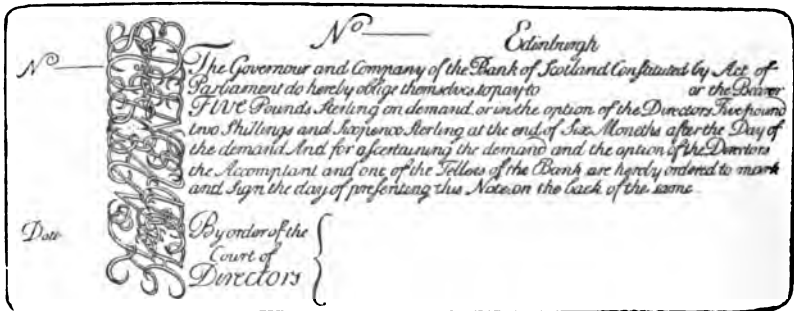 No
No Edinburgh
The Governour and Company of the Bank of Scotland Constituted by Act of
Parliament do hereby oblige themselves to pay to or the Bearer
FIVE Pounds Sterling on demand, or in the option of the Directors Five pound
two Shillings and Sixpence Sterling at the end of Six Moneths after the Day of
the demand And for ascertaining the demand and the option of the Directors
the Accomptant and one of the Tellers of the Bank are hereby ordered to mark
and Sign the day of presenting this Note on the back of the same
Date
By order of the
Court of
Directors